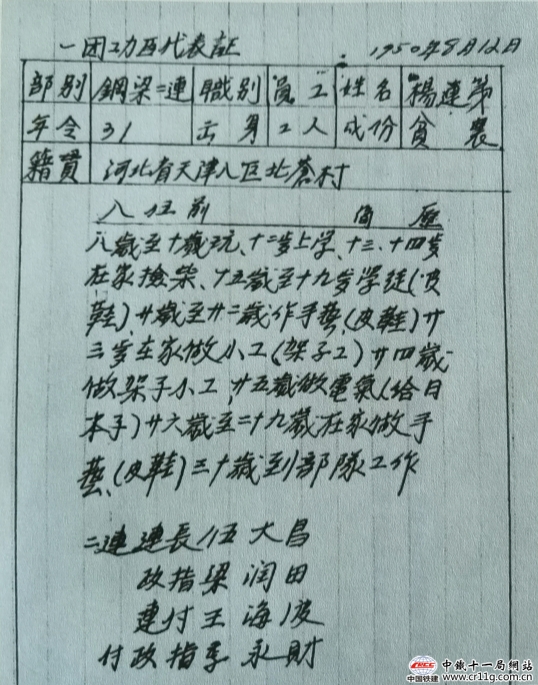 一团功臣代表证 1950年8月12日
部别 鋼梁二連 職别 員工 姓名 楊連茂
年令 31 出身 工人 成份 貧農
籍貫 河北省天津八区北蒼村
入伍前 简历
八歲至十歲玩、十二岁上学、十三、十四岁
在家撿柴、十五歲至十九岁学徒(皮
鞋)廿歲至廿二歲作手藝(皮鞋)廿
三岁在家做小工(架子工)廿四歲
做架子小工,廿五歲做電氣(给日
本子)廿六歲至二十九歲在家做手
藝(皮鞋)三十歲到部隊工作
二連連長伍大昌
政指梁润田
連付王海波
付政指李永財
中鐵十一局网站
CRCC
中国铁建 www.cr11g.com.cn